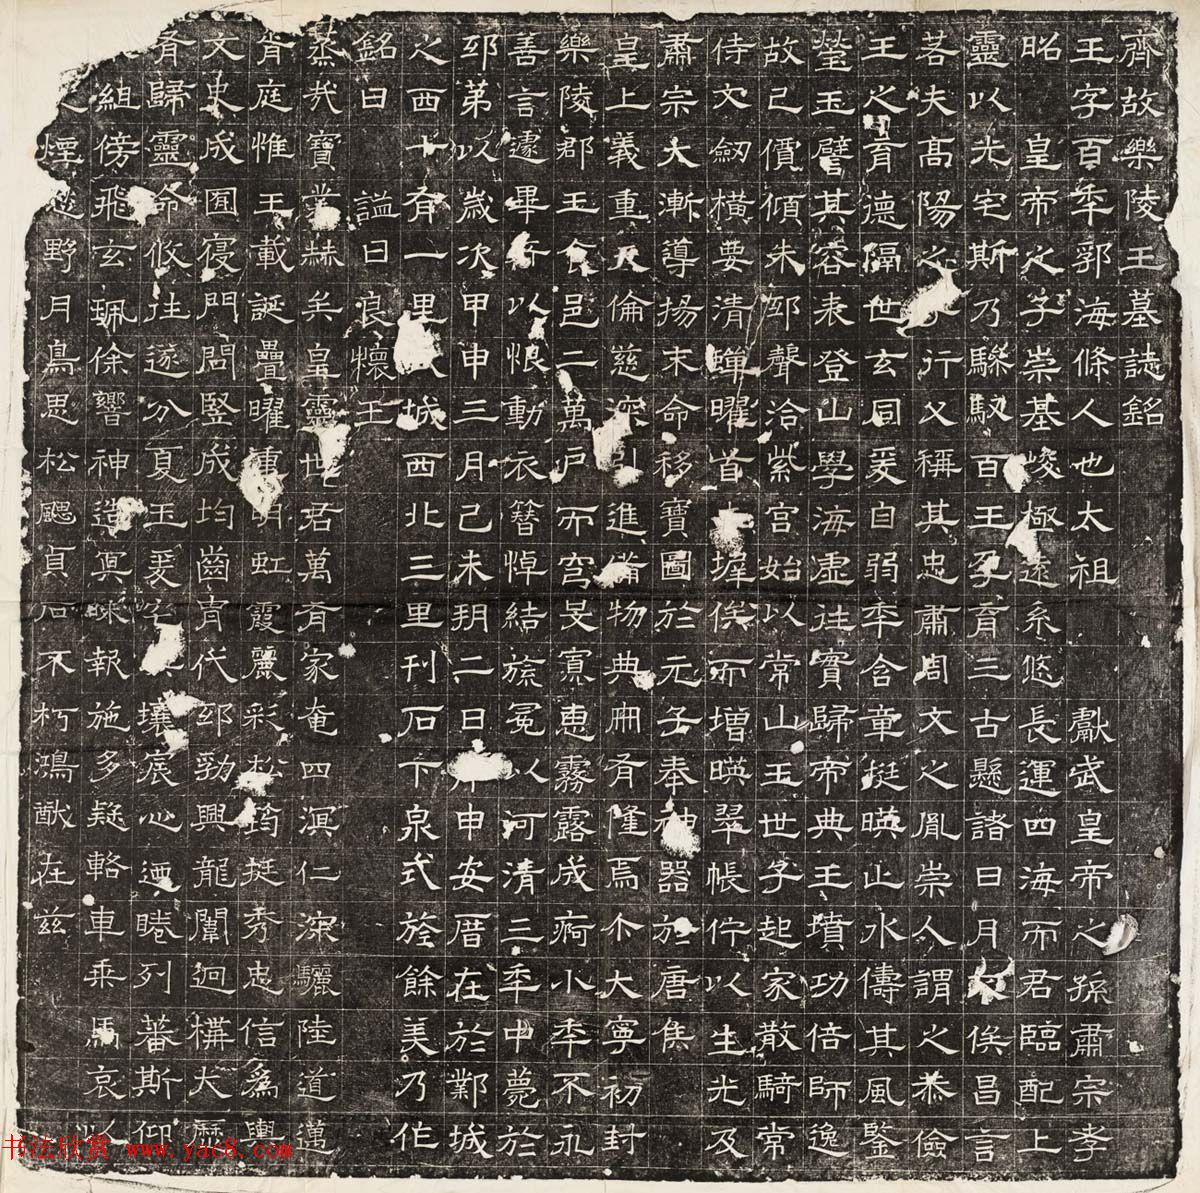 齊故樂陵王墓誌銘
王字百年郭海條人也太祖 獻武皇帝之孫肅宗孝
昭 皇帝之子崇基峻極遠系悠長運四海而君臨配上
靈以光宅斯乃驂馭百王孕育三古懸諸日月不俟昌言
若夫高陽之子行父稱其忠肅周文之胤崇人謂之恭儉
王之育德隔世玄同爰自弱年含章挺暎止水儔其風鑒
瑩玉譬其容表登山學海虛往實歸帝典王墳功倍師逸
故已價傾朱邸聲洽紫宮始以常山王世子起家散騎常
侍文劒橫要清蟬曜首墀俟而增暎翠帳佇以生光及
肅宗大漸導揚末命移寶圖於元子奉神器於唐侯
皇上義重天倫慈深引進備物典冊有隆焉尒大寧初封
樂陵郡王食邑二萬戶而穹旻寡惠霧露成痾小年不永
善言遽畢行以悵動衣簪悼結旒冕以河清三年中薨於
邸第以歲次甲申三月己未朔二日庚申安厝在於鄴城
之西十有一里武城西北三里刊石下泉式旌餘美乃作
銘曰 謚曰 良懷王
蒸哉寶業赫矣皇靈世君萬有家奄四溟仁深驪陸道邁
胥庭惟王載誕疊曜重明虹霞麗彩松筠挺秀忠信為輿
文史成囿寢門問豎成均齒冑代邸勃興龍闈迥構大曆
有歸靈命攸往遂分夏玉爰宇壤宸心迺睠列蕃斯仰
組傍飛玄珮徐響神造冥昧報施多疑輅車乘馬哀以
煙愁野月鳥思松颸貞石不朽鴻猷在茲
书法欣赏 www.yac8.com